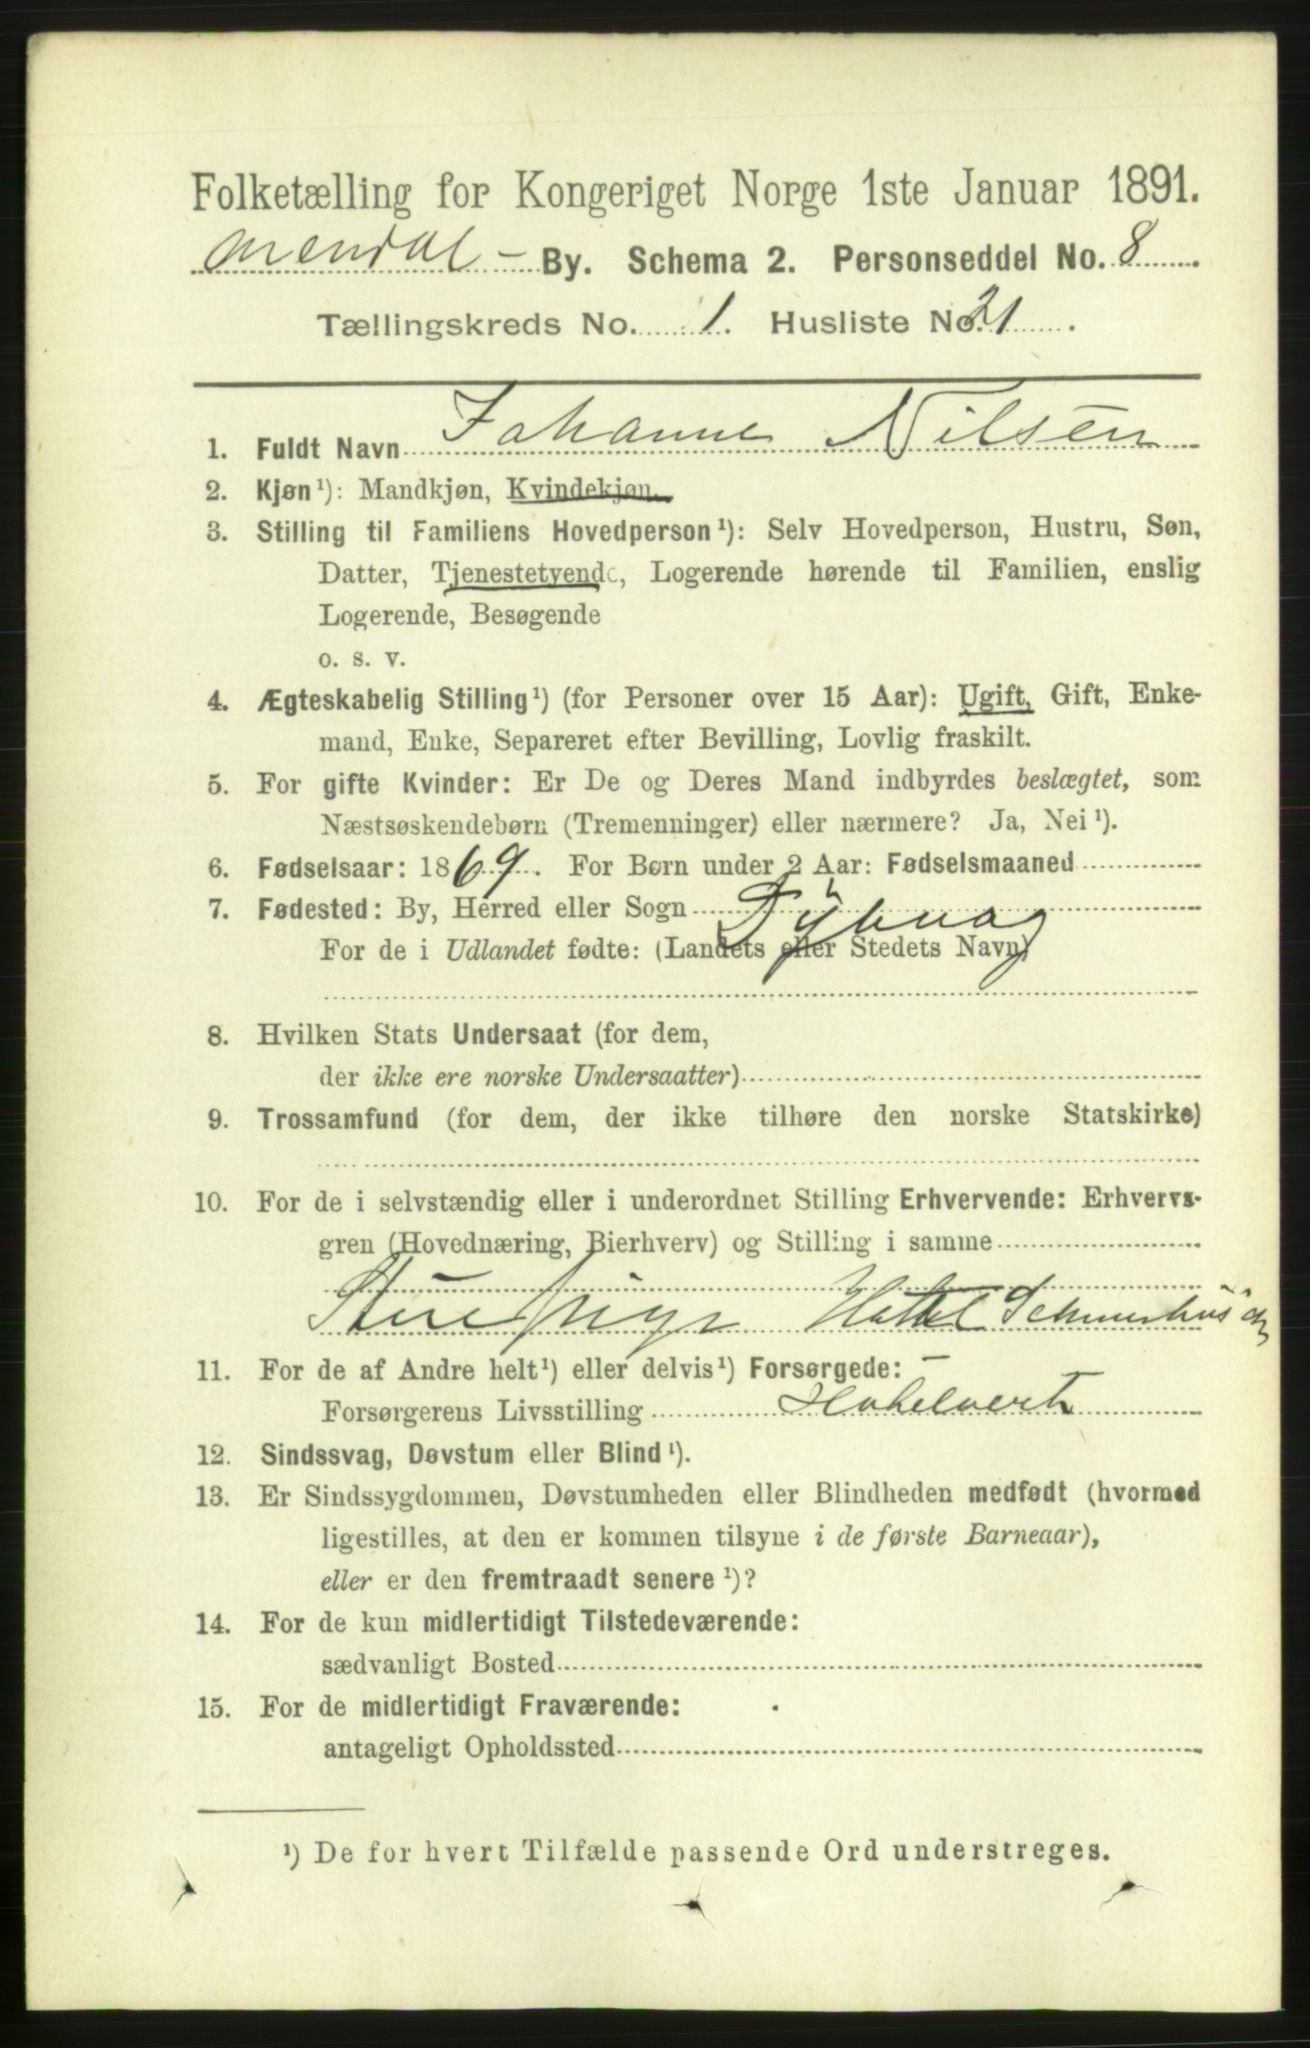 Folketælling for Kongeriget Norge 1ste Januar 1891.
Arendal - By. Schema 2. Personseddel No. 8
Tællingskreds No. 1. Husliste No. 21.
1. Fuldt Navn Johanne Nilsen
2. Kjøn¹): Mandkjøn, Kvindekjøn.
3. Stilling til Familiens Hovedperson¹): Selv Hovedperson, Hustru, Søn,
Datter, Tjenestetyende, Logerende hørende til Familien, enslig
Logerende, Besøgende
o. s. v.
4. Ægteskabelig Stilling¹) (for Personer over 15 Aar): Ugift, Gift, Enke-
mand, Enke, Separeret efter Bevilling, Lovlig fraskilt.
5. For gifte Kvinder: Er De og Deres Mand indbyrdes beslægtet, som
Næstsøskendebørn (Tremenninger) eller nærmere? Ja, Nei¹).
6. Fødselsaar: 1869. For Børn under 2 Aar: Fødselsmaaned
7. Fødested: By, Herred eller Sogn Dybvag
For de i Udlandet fødte: (Landets eller Stedets Navn)
8. Hvilken Stats Undersaat (for dem,
der ikke ere norske Undersaatter)
9. Trossamfund (for dem, der ikke tilhøre den norske Statskirke)
10. For de i selvstændig eller i underordnet Stilling Erhvervende: Erhvervs-
gren (Hovednæring, Bierhverv) og Stilling i samme
Stuepige Hotel
11. For de af Andre helt¹) eller delvis¹) Forsørgede: -
Forsørgerens Livsstilling Hotelvert
12. Sindssvag, Døvstum eller Blind¹).
13. Er Sindssygdommen, Døvstumheden eller Blindheden medfødt (hvormed
ligestilles, at den er kommen tilsyne i de første Barneaar),
eller er den fremtraadt senere¹)?
14. For de kun midlertidigt Tilstedeværende:
sædvanligt Bosted
15. For de midlertidigt Fraværende:
antageligt Opholdssted
¹) De for hvert Tilfælde passende Ord understreges.